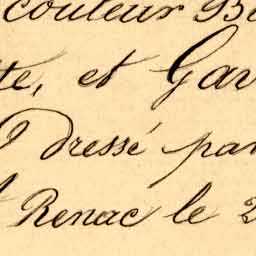 couleur B
te, et Gar
Dressé par
Renac le 2